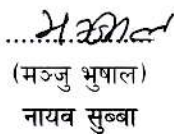 (मञ्जु भुषाल)
नायव सुब्बा